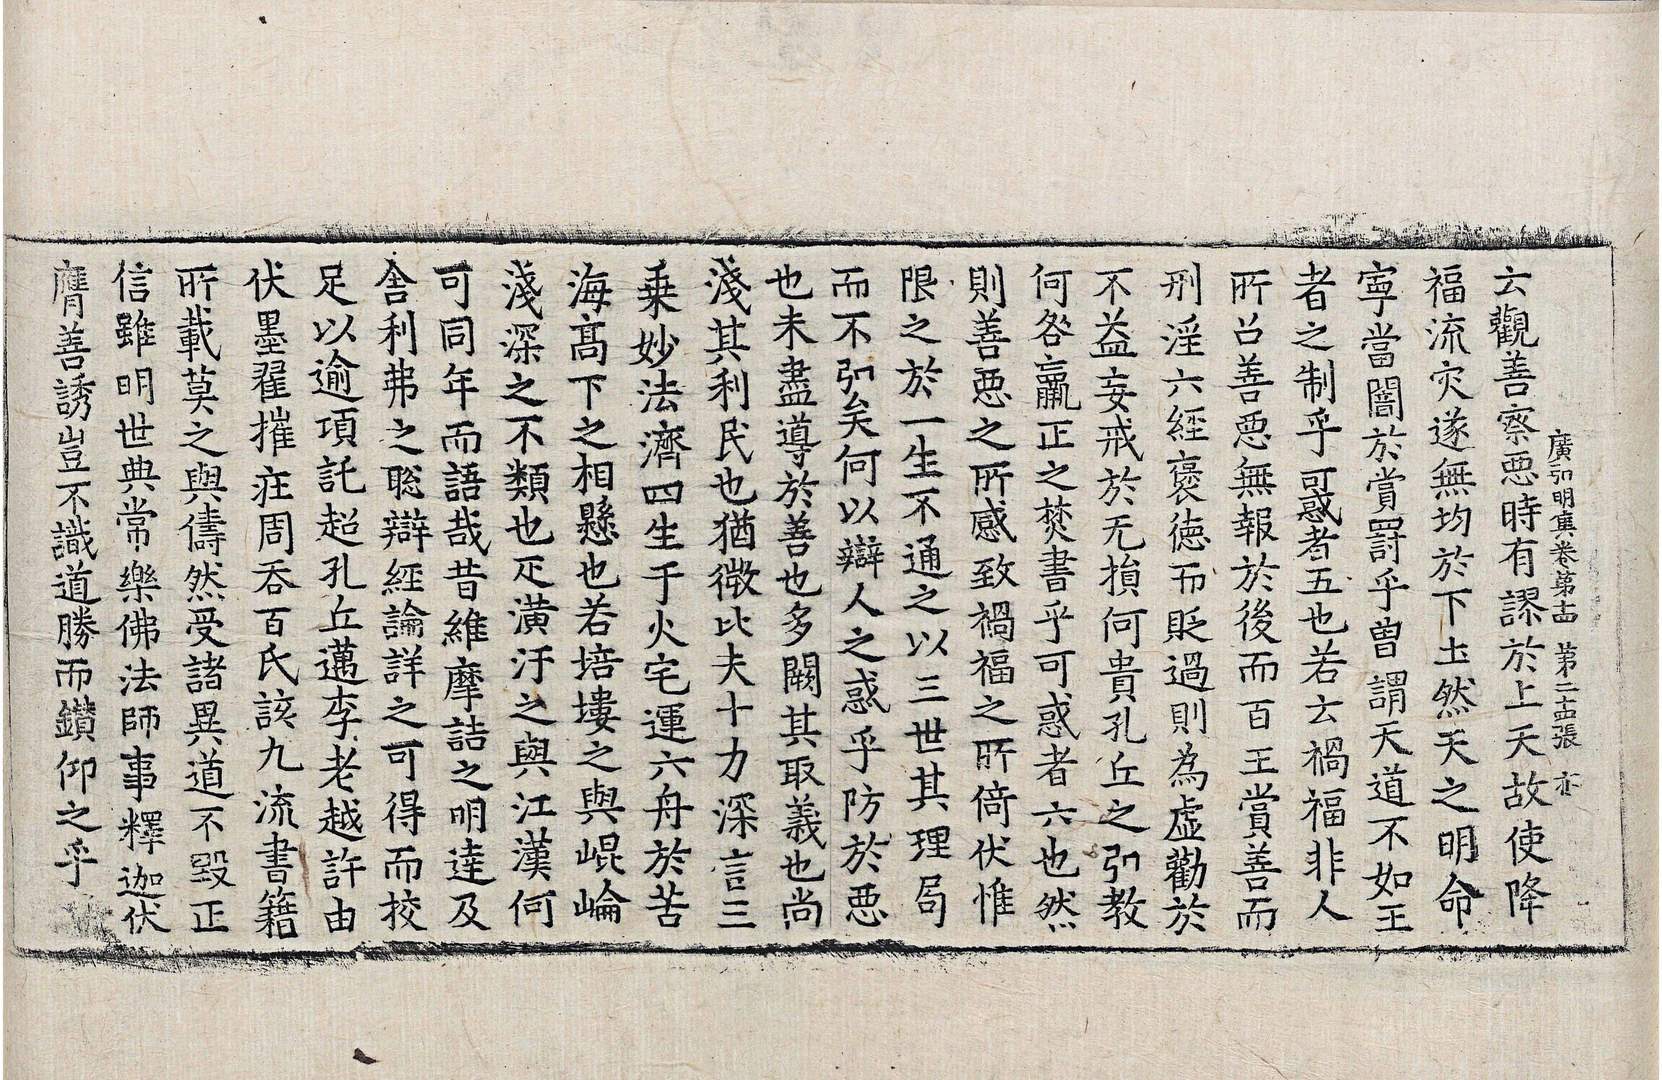 廣弘明集卷第十四　第二十四張　亦
云觀善察惡時有謬於上天故使降
福流灾遂無均於下土然天之明命
寧當闇於賞罸乎曾謂天道不如王
者之制乎可惑者五也若云禍福非人
所召善惡無報於後而百王賞善而
刑淫六經褒徳而貶過則為虛勸於
不益妄戒於无損何貴孔丘之弘教
何咎羸正之焚書乎可惑者六也然
則善惡之所感致禍福之所倚伏惟
限之於一生不通之以三世其理局
而不弘矣何以辯人之惑乎防於惡
也未盡導於善也多闕其取義也尚
淺其利民也猶微比夫十力深言三
乗妙法濟四生于火宅運六舟於苦
海髙下之相懸也若培塿之與崐崘
淺深之不類也疋潢汙之與江漢何
可同年而語哉昔維摩詰之明達及
舍利弗之聡辯經論詳之可得而挍
足以逾項託超孔丘邁李老越許由
伏墨翟摧庄周吞百氏該九流書籍
所載莫之與儔然受諸異道不毀正
信雖明世典常樂佛法師事釋迦伏
膺善誘豈不識道勝而鑚仰之乎